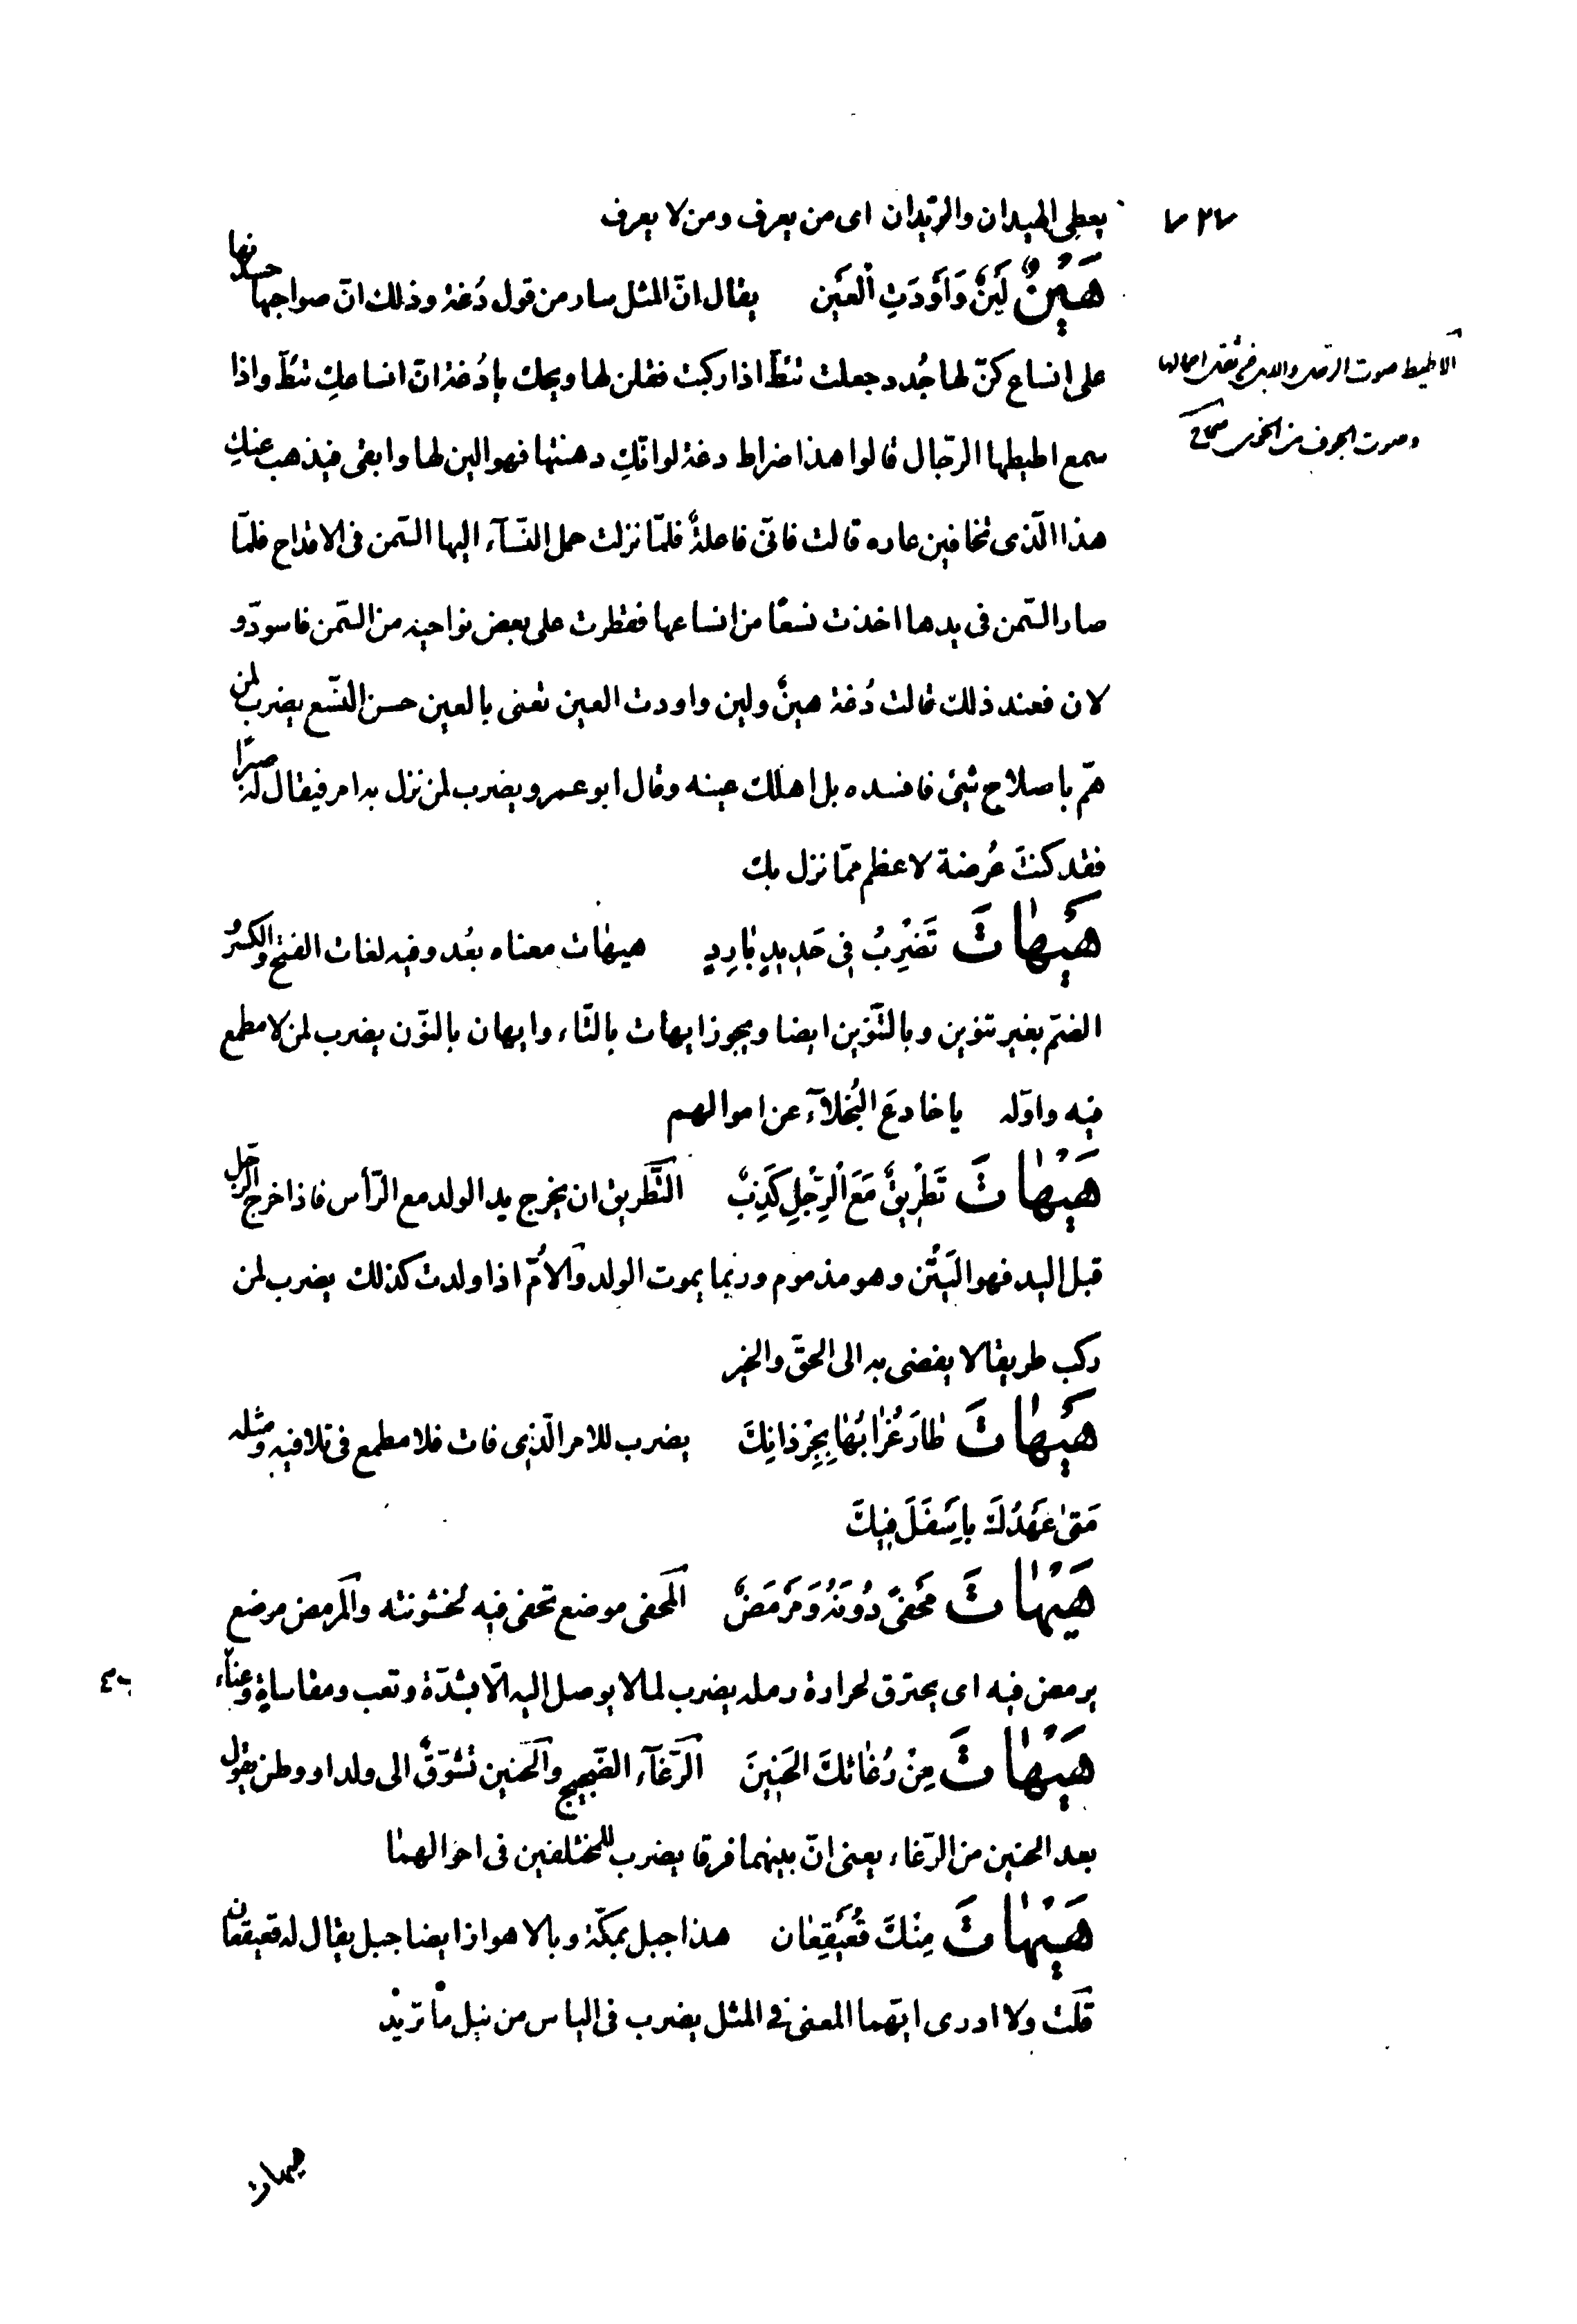 ٧٢٧
يعطى الهيدان والرّيدان اى من يعرف ومن لا يعرف
هَيْنٌ لَيْنٌ وَاَوْدَتِ الْعَيْن يقال انّ المثل سار من قول دُغة وذلك انّ صواحبها حسدنها
على انساع كنّ لها جُدد جعلت تئطّ اذا ركبت فقلن لها ويحك يا دُغة انّ انساعكِ تئطّ واذا
سمع اطيطها الرّجال قالوا هذا ضراط دغة لو انّكِ دهنتها فهو الين لها وابقى فيذهب عنكِ
هذا الّذى تخافين عاره قالت فانّى فاعلةٌ فلمّا نزلت حمل النّسآء اليها السّمن فى الاقداح فلمّا
صار السّمن فى يدها اخذت نسعًا من انساعها فقطرت على بعض نواحيه من السّمن فاسودّ و
لان فعند ذلك قالت دُغة هينٌ ولين واودت العين تعنى بالعين حسن النّسع يضرب لمن
همّ باصلاح شئ فافسده بل اهلك عينه وقال ابو عمرو يضرب لمن نزل به امر فيقال له صبرًا
فقد كنتَ عُرضة لاعظم ممّا نزل بك
هَيْهَاتَ تَضْرِبُ فِى حَدِيدٍ بٰارِدٍ هيهات معناه بعُد وفيه لغات الفتح والكسرُ
الضمّ بغير تنوين وبالتّنوين ايضا ويجوز ايهات بالتّاء وايهان بالنّون يضرب لمن لا مطمع
فيه واوّله يا خادعَ البُخلآء عن اموالهم
هَيْهٰاتَ تَطْرِيقٌ مَعَ الْرِّجْلِ كَذِبٌ التَّطريق ان يخرج يد الولد مع الرّأس فاذا خرج الرّجل
قبل اليد فهو اليَتْن وهو مذموم وربّما يموت الولد والامّ اذا ولدت كذلك يضرب لمن
ركب طريقا لا يفضى به الى الحقّ والخير
هَيْهٰاتَ طٰارَ غُرٰابُهٰا بِجِرْذانِكَ يضرب للامر الّذى فات فلا مطمع فى تلافيه ومثله
مَتٰى عَهْدُكَ بِاَسْفَلَ فِيكَ
هَيْهٰاتَ مَحْفىً دُونَهُ وَمَرْمَضٌ المحفى موضع تحفى فيه لخشونته والمرمض موضع
يرمض فيه اى يحترق لحرارة رمله يضرب لما لا يوصل اليه الّا بشدّة وتعب ومقاساةٍ وعنآء
هَيْهٰاتَ مِنْ رُغٰائكَ الحَنِينَ الرّغآء الضّجيج والحنين تشوّقٌ الى ولد او وطن يقول
بعد الحنين من الرّغاء يعنى انّ بينهما فرقا يضرب للمختلفين فى احوالهما
هَيْهٰاتَ مِنْكَ قُعَيْقِعٰان هذا جبل بمكّة وبالاهواز ايضا جبل يقال له قعيقعان
قلت ولا ادرى ايّهما المعنى فى المثل يضرب فى الياس من نيل ما تريد
الاطيط صوت الرحل والابل من ثقل احمالها
وصوت الجوف من الخوى صحاح
هيهات